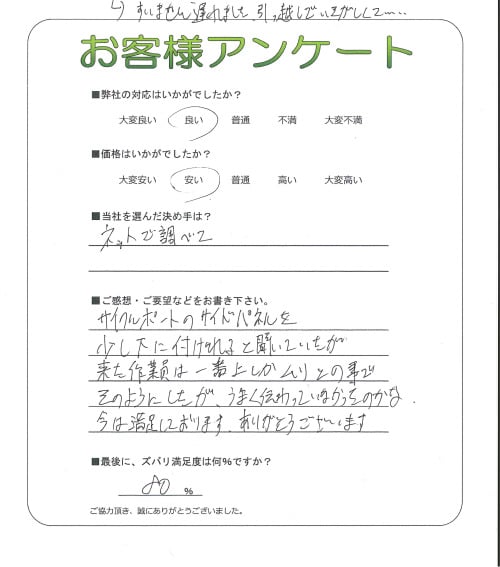 すいません遅れました 引っ越しでいそがしくて……
お客様アンケート
■弊社の対応はいかがでしたか?
大変良い 良い 普通 不満 大変不満
■価格はいかがでしたか?
大変安い 安い 普通 高い 大変高い
■当社を選んだ決め手は?
ネットで調べて
■ご感想・ご要望などをお書き下さい。
サイクルポートのサイドパネルを
少し下に付けれると聞いていたが
来た作業員は一番上しかムリとの事で
そのようにしたが、うまく伝わっていなかったのかな.
今は満足しております。ありがとうございます
■最後に、ズバリ満足度は何%ですか?
80 %
ご協力頂き、誠にありがとうございました。